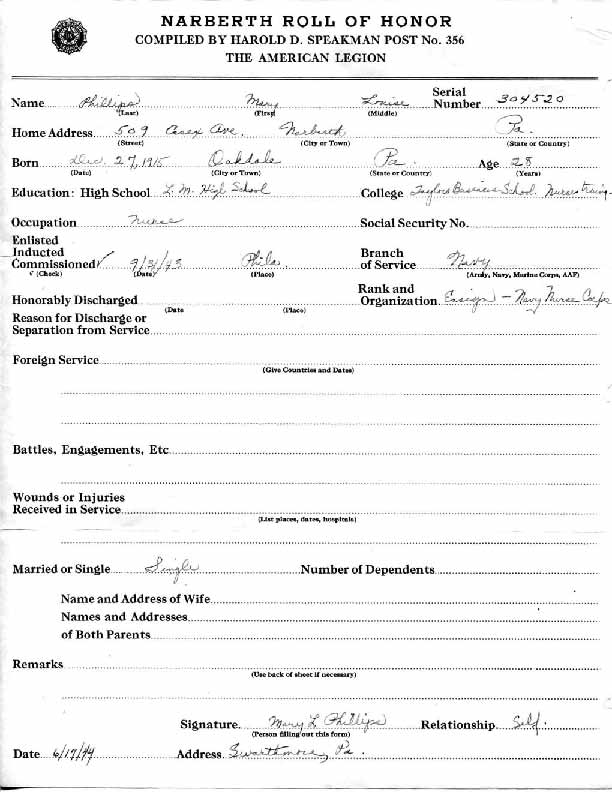 NARBERTH ROLL OF HONOR
COMPILED BY HAROLD D. SPEAKMAN POST No. 356
THE AMERICAN LEGION
Name Phillips Mary Louise Serial Number 304520
(Last) (First) (Middle)
Home Address 509 Essex Ave. Narberth Pa.
(Street) (City or Town) (State or Country)
Born Dec. 27, 1915 Oakdale Pa. Age 28
(Date) (City or Town) (State or Country) (Years)
Education: High School L. M. High School College Taylors Business School. Nurses Traing.
Occupation Nurse Social Security No.
Enlisted
Inducted Branch
Commissioned ✓ 9/31/43 Phila of Service Navy
✓ (Check) (Date) (Place) (Army, Navy, Marine Corps, AAF)
Rank and
Honorably Discharged Organization Ensign - Navy Nurse Corps
(Date (Place)
Reason for Discharge or
Separation from Service
Foreign Service
(Give Countries and Dates)
Battles, Engagements, Etc
Wounds or Injuries
Received in Service
(List places, dates, hospitals)
Married or Single Single Number of Dependents
Name and Address of Wife
Names and Addresses
of Both Parents
Remarks
(Use back of sheet if necessary)
Signature Mary L Phillips Relationship Self.
(Person filling out this form)
Date 6/17/44 Address Swarthmore, Pa.